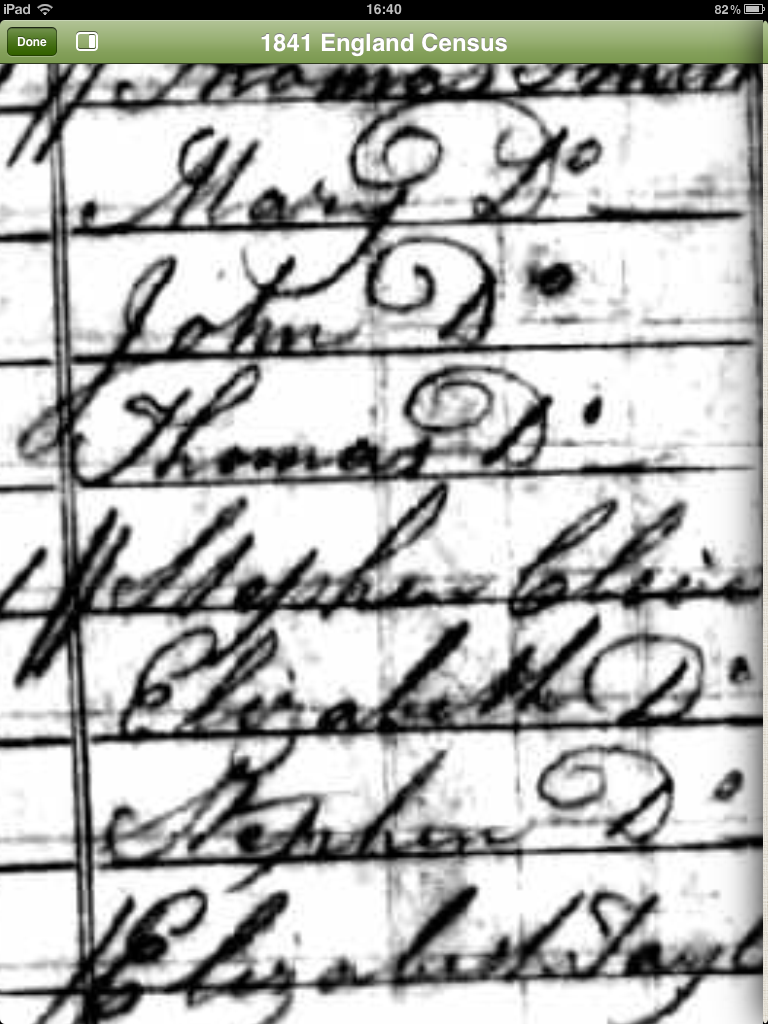 iPad 16:40 82%
Done 1841 England Census
Thomas
Mary Do
John Do
Thomas Do
Stephen
Elizabeth Do
Stephen Do
Elizabeth Tayl